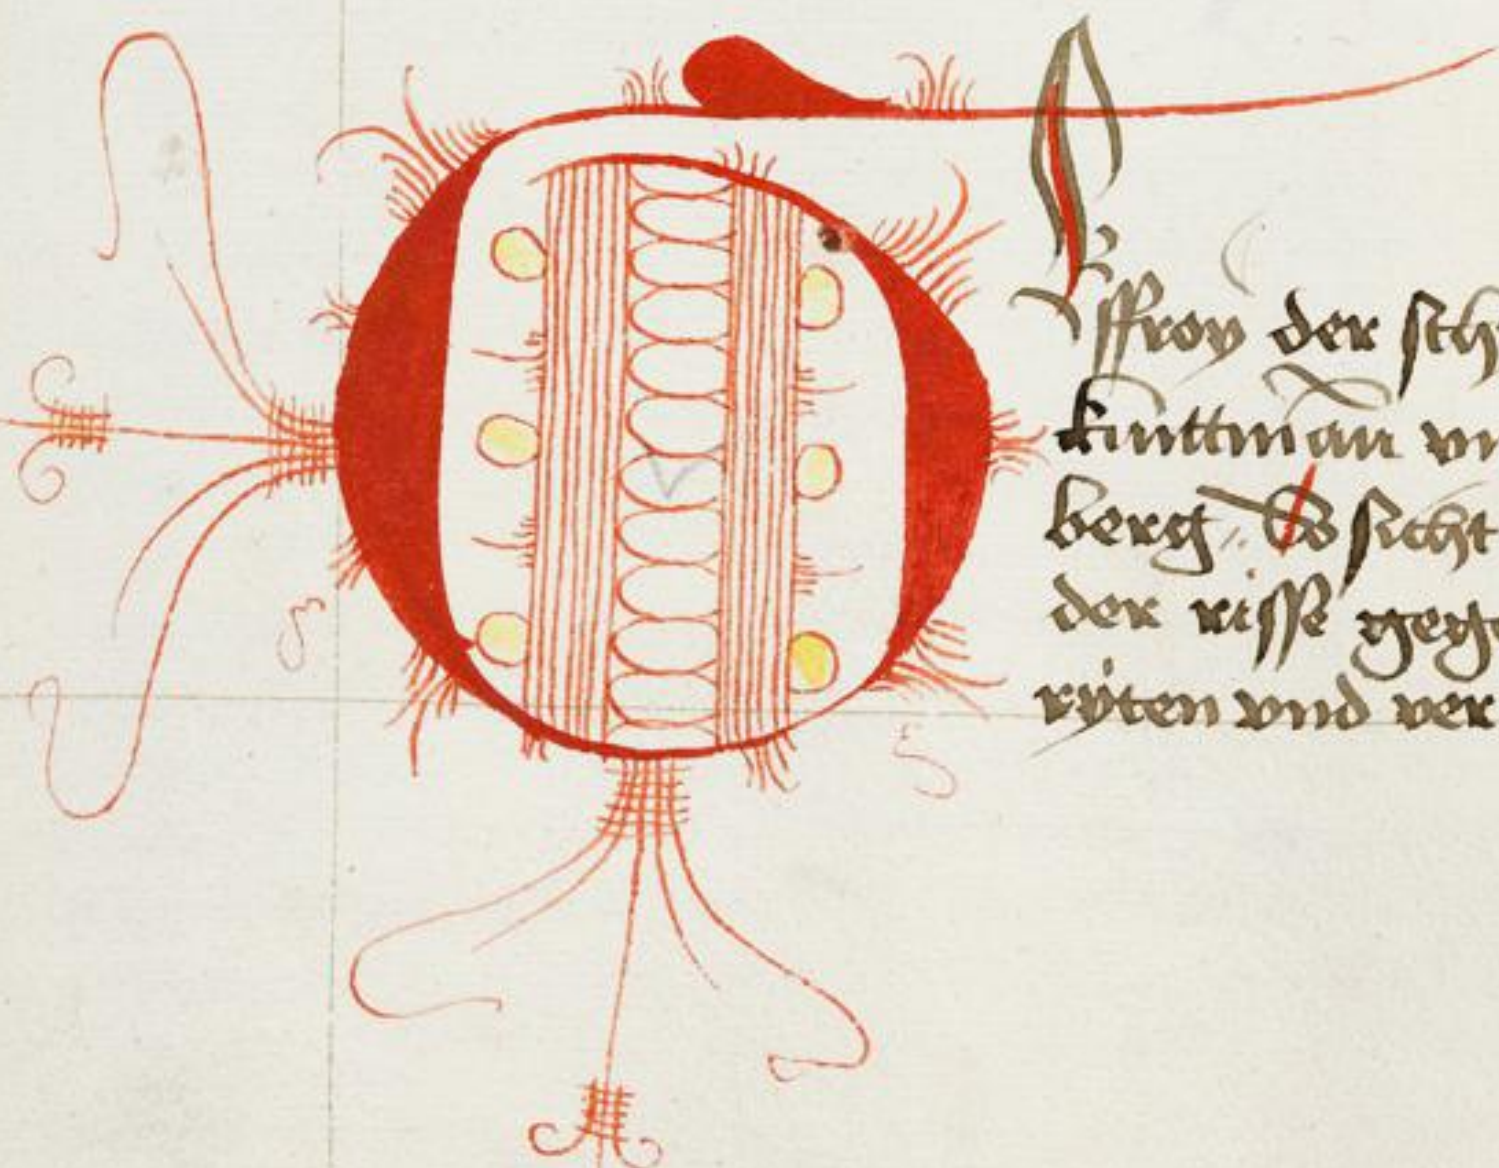 GEffroy der sch
kunttman vn
berg. So sicht
der risse gege
ryten vnd ver